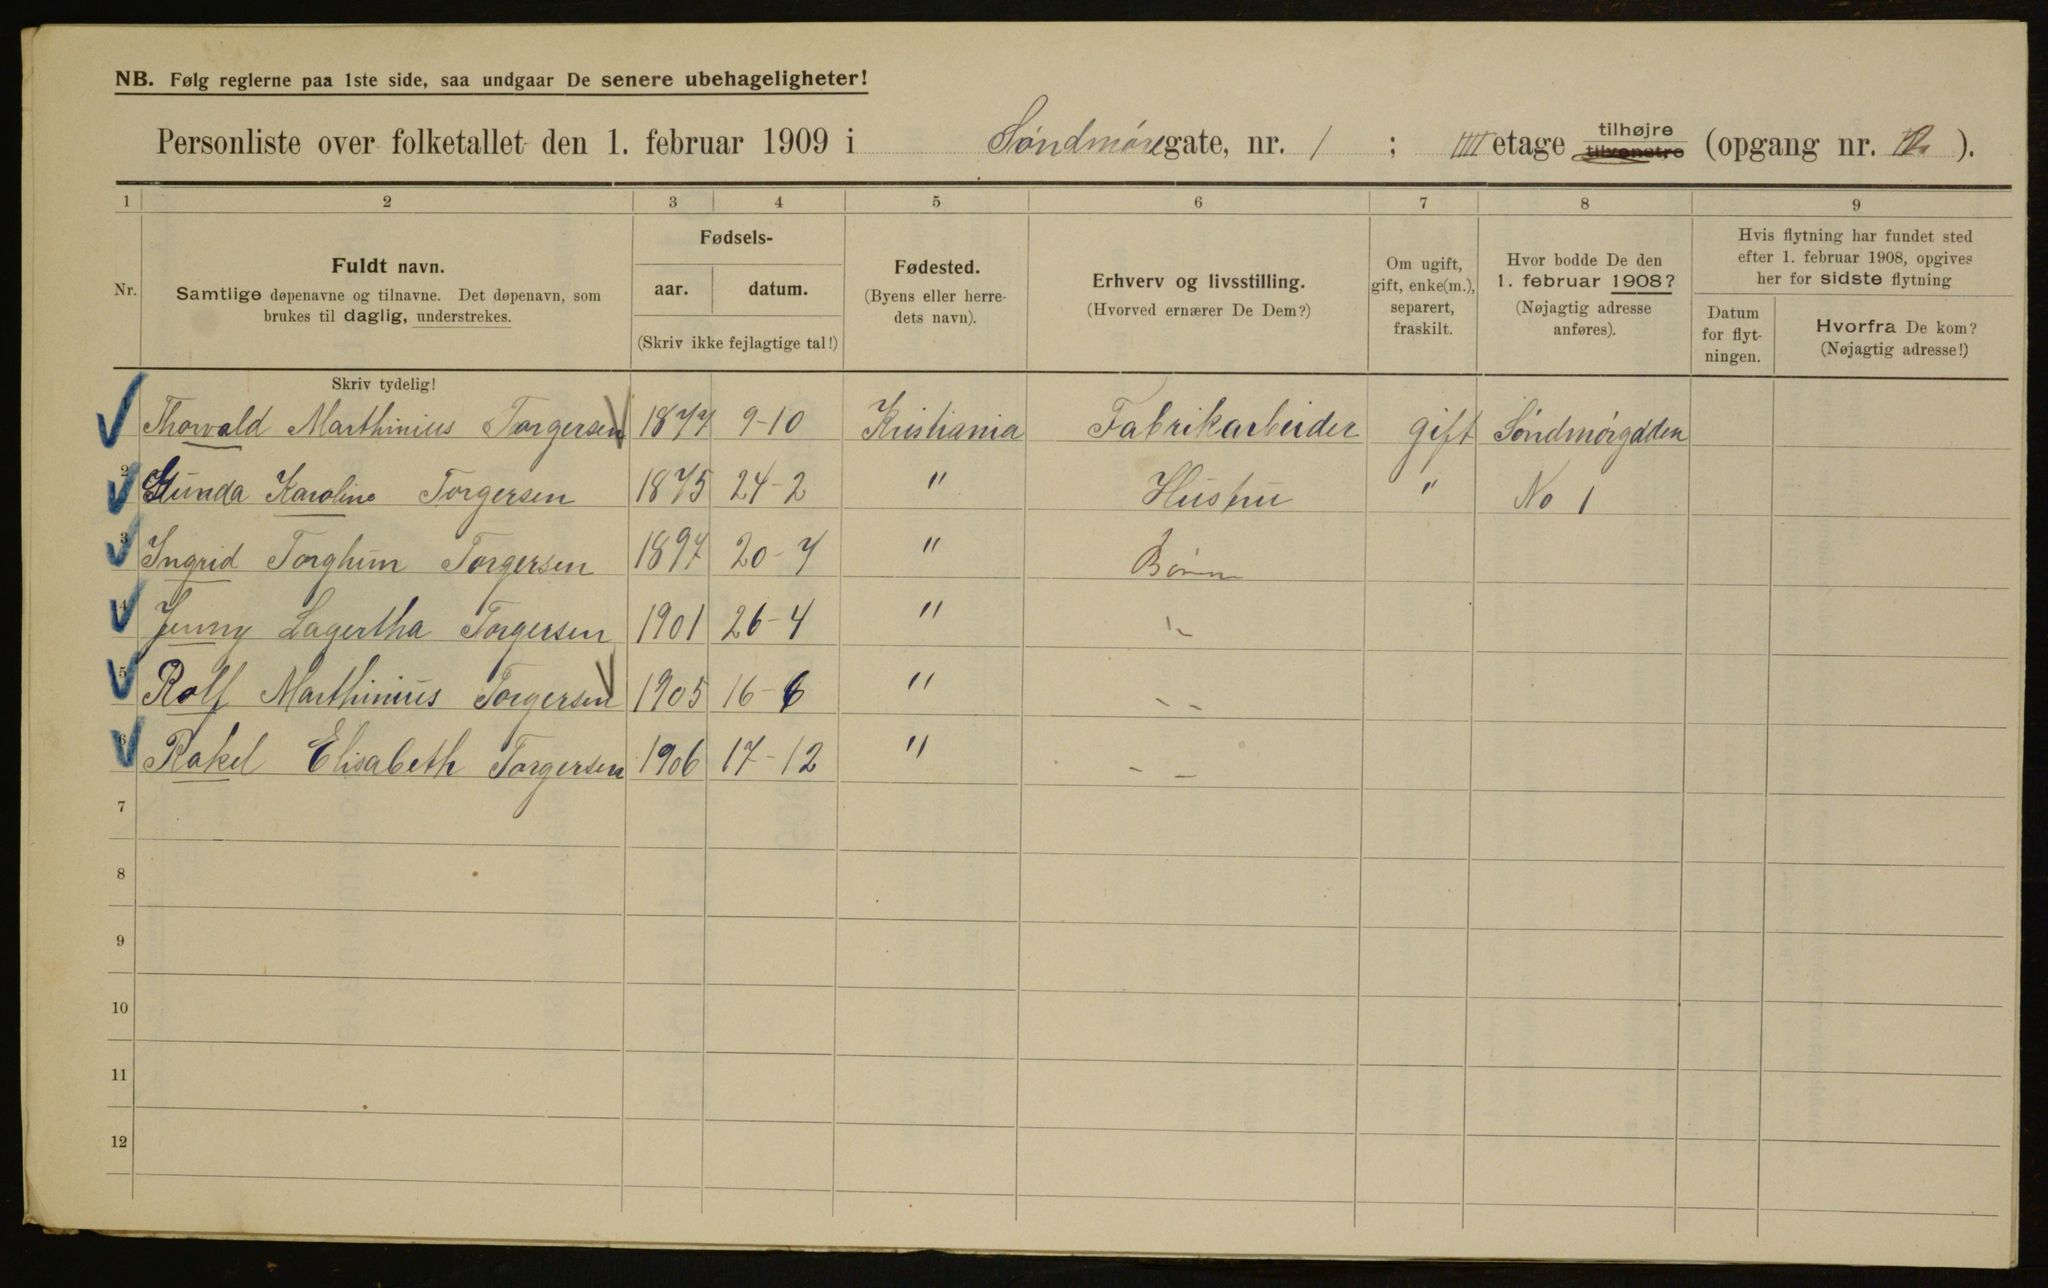 NB. Følg reglerne paa 1ste side, saa undgaar De senere ubehageligheter!
Personliste over folketallet den 1. februar 1909 i Søndmøregate, nr. 1 ; IIII etage tilhøjre tilvenstre (opgang nr. ).
1 2 3 4 5 6 7 8 9
Nr.
Fuldt navn.
Samtlige døpenavne og tilnavne. Det døpenavn, som
brukes til daglig, understrekes.
Fødsels-
aar. datum.
(Skriv ikke fejlagtige tal!)
Fødested.
(Byens eller herre-
dets navn).
Erhverv og livsstilling.
(Hvorved ernærer De Dem?)
Om ugift,
gift, enke(m.),
separert,
fraskilt.
Hvor bodde De den
1. februar 1908?
(Nøjagtig adresse
anføres).
Hvis flytning har fundet sted
efter 1. februar 1908, opgives
her for sidste flytning
Datum
for flyt-
ningen.
Hvorfra De kom?
(Nøjagtig adresse!)
Skriv tydelig!
Thorvald Marthinius Torgersen 1877 9-10 Kristiania Fabrikarbeider gift Søndmørgadden
2 Gunda Karoline Torgersen 1875 24-2 " Hustru " No 1
3 Ingrid Torghun Torgersen 1897 20-7 " Børn
4 Jenny Lagertha Torgersen 1901 26-4 " "
5 Rolf Marthinius Torgersen 1905 16-6 " - -
6 Rakel Elisabeth Torgersen 1906 17-12 " - -
7
8
9
10
11
12